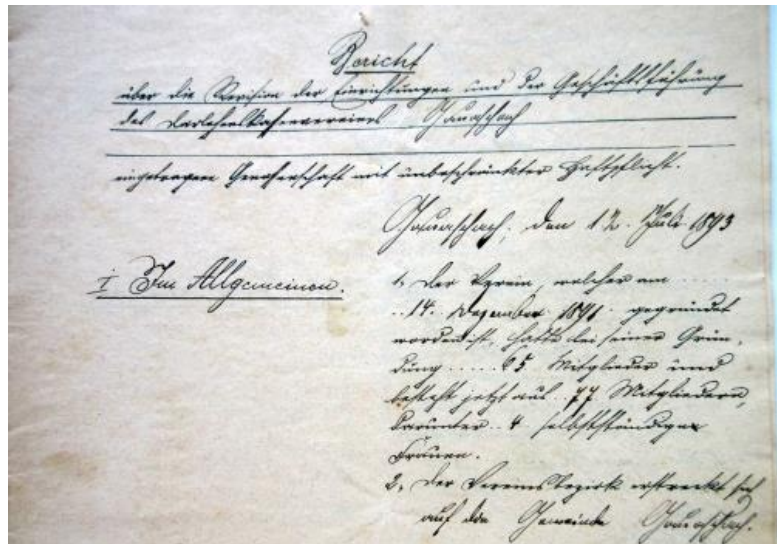 Bericht
über die Revision der Einrichtungen und der Geschäftsführung
des Darlehenskassenvereins
eingetragene Genossenschaft mit unbeschränkter Haftpflicht.
den 12. Juli 1893
I Im Allgemeinen.
1. Der Verein, welcher am .....
..14. Dezember 1891. gegründet
worden ist, hatte bei seiner Grün-
dung ..... 65 Mitglieder und
besteht jetzt aus.. 77 Mitgliedern,
darunter.. 4 selbstständigen
Frauen.
2. Der Vereinsbezirk erstreckt sich
auf die Gemeinde